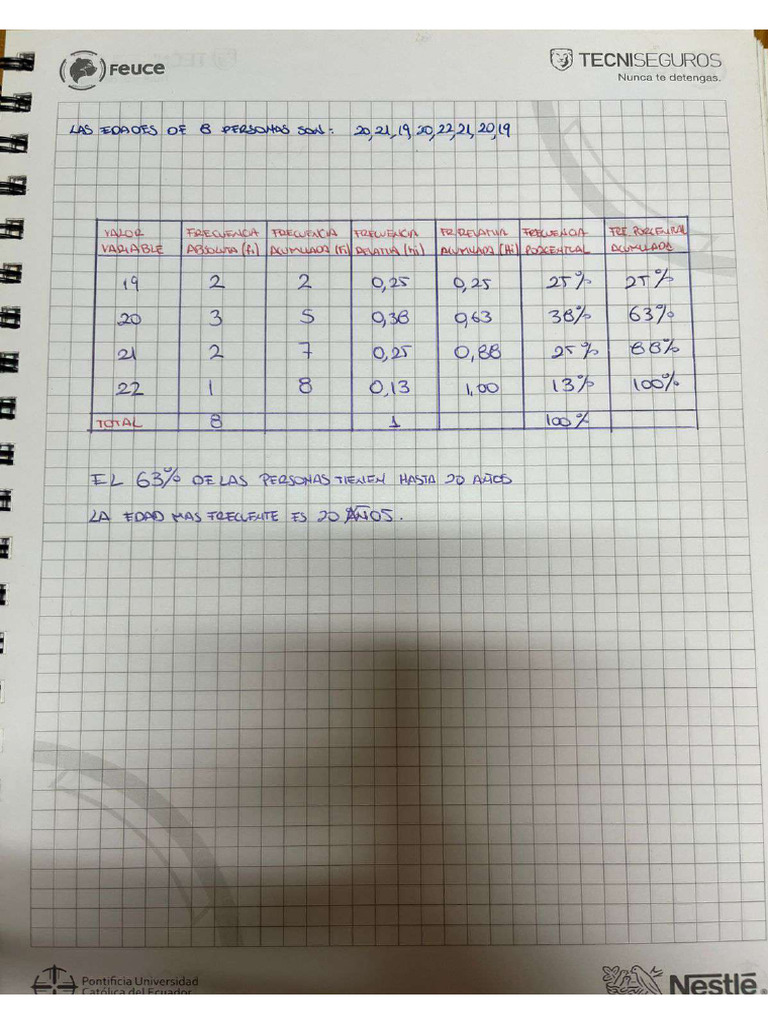 Feuce
TECNISEGUROS
Nunca te detengas.
LAS EDADES DE 8 PERSONAS SON: 20, 21, 19, 20, 22, 21, 20, 19
VALOR VARIABLE | FRECUENCIA ABSOLUTA (fi) | FRECUENCIA ACUMULADA (Fi) | FRECUENCIA RELATIVA (hi) | FR RELATIVA ACUMULADA (Hi) | FRECUENCIA PORCENTUAL | FRE PORCENTUAL ACUMULADA
19 2 2 0,25 0,25 25% 25%
20 3 5 0,38 0,63 38% 63%
21 2 7 0,25 0,88 25% 88%
22 1 8 0,13 1,00 13% 100%
TOTAL 8 1 100%
EL 63% DE LAS PERSONAS TIENEN HASTA 20 AÑOS
LA EDAD MAS FRECUENTE ES 20 AÑOS.
Pontificia Universidad
Católica del Ecuador
Nestlé